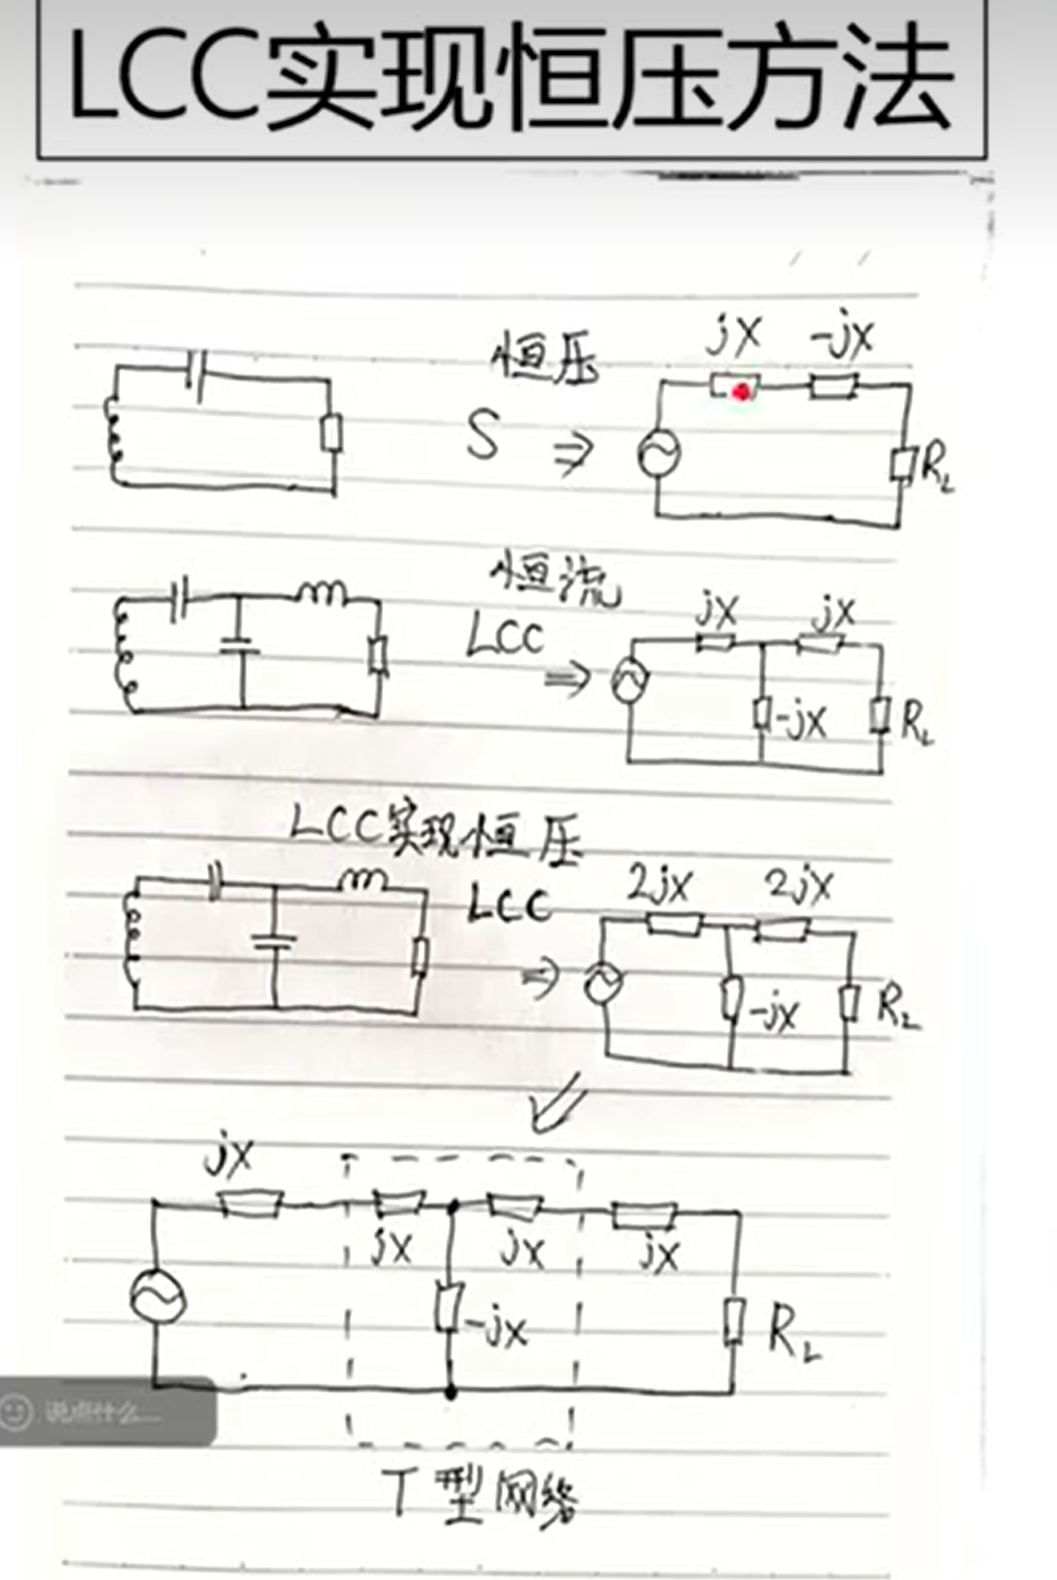 LCC实现恒压方法
恒压
jX -jX
S ⇒
R_L
恒流
LCC ⇒
jX jX
-jX R_L
LCC实现恒压
LCC ⇒
2jX 2jX
-jX R_L
jX
jX jX jX
-jX R_L
说点什么...
T型网络